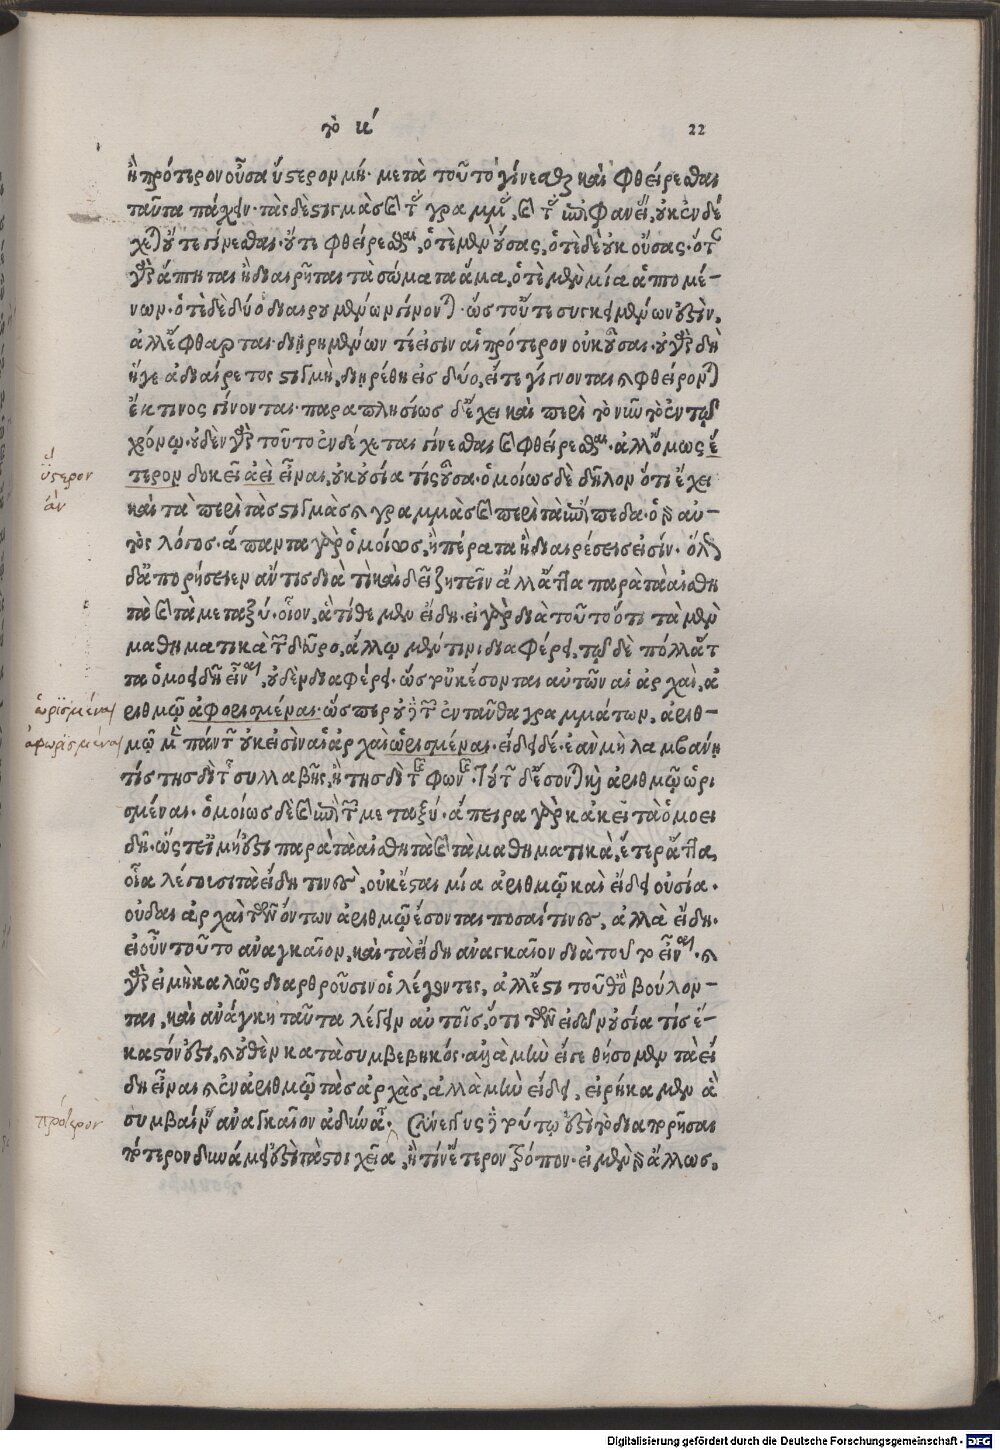 22
ἢ πρότερον οὖσα ὕστερον μή· μετὰ τοῦ τὸ γίνεσθαι καὶ φθείρεσθαι
ταῦτα πάσχειν· τὰς δὲ στιγμὰς καὶ τὰς γραμμὰς, καὶ τὰς ἐπιφανείας, οὐκ ἐνδέ
χεται οὔτε γίνεσθαι· οὔτε φθείρεσθαι, ὁτὲ μὲν οὔσας, ὁτὲ δὲ οὐκ οὔσας· ὅταν
γὰρ ἅπτηται ἢ διαιρῆται τὰ σώματα ἅμα, ὁτὲ μὲν μία ἁπτομέ-
νων· ὁτὲ δὲ δύο διαιρουμένων γίνονται· ὥστ' οὔτε συγκειμένων ἐστὶν,
ἀλλ' ἔφθαρται· διῃρημένων τέ εἰσιν αἱ πρότερον οὐκ οὖσαι· οὐ γὰρ δὴ
ἥγε ἀδιαίρετος στιγμὴ, διῃρέθη εἰς δύο, εἴτε γίγνονται καὶ φθείρονται
ἔκ τινος γίνονται· παραπλησίως δ' ἔχει καὶ περὶ τὸ νῦν τὸ ἐν τῷ
χρόνῳ· οὐδὲν γὰρ τοῦτο ἐνδέχεται γίνεσθαι καὶ φθείρεσθαι· ἀλλ' ὅμως ἕ
τερον δοκεῖ ἀεὶ εἶναι, οὐκ οὐσία τίς οὖσα· ὁμοίως δὲ δῆλον ὅτι ἔχει
ὕστερον
ἂν
καὶ τὰ περὶ τὰς στιγμὰς καὶ γραμμὰς καὶ περὶ τὰ ἐπίπεδα· ὁ γὰρ αὐ-
τὸς λόγος· ἅπαντα γὰρ ὁμοίως, ἢ πέρατα ἢ διαιρέσεις εἰσίν· ὅλως
δ' ἀπορήσειεν ἄν τις διὰ τὶ καὶ δεῖ ζητεῖν ἄλλ' ἄττα παρὰ τὰ αἰσθη
τὰ καὶ τὰ μεταξύ· οἷον, ἃ τίθεμεν εἴδη· εἰ γὰρ διὰ τοῦτο ὅτι τὰ μὲν
μαθηματικὰ τῶν δεῦρο, ἄλλῳ μέν τινι διαφέρει, τῷ δὲ πόλλ' ἄτ
τα ὁμοειδῆ εἶναι, οὐδὲν διαφέρει· ὥστ' οὐκ ἔσονται αὐτῶν αἱ ἀρχαὶ, ἀ
ριθμῷ ἀφορισμέναι· ὥσπερ οὐδὲ τῶν ἐνταῦθα γραμμάτων, ἀριθ-
ὡρισμέναι
ἀφωρισμέναι
μῷ μὲν πάντων οὐκ εἰσὶν αἱ ἀρχαὶ ὡρισμέναι· εἴδει δέ· ἐὰν μὴ λαμβάνῃ
τίς τησδὶ τῆς συλλαβῆς, ἢ τησδὶ τῆς φωνῆς· τούτων δ' ἔσονται καὶ ἀριθμῷ ὡρι
σμέναι· ὁμοίως δὲ καὶ ἐπὶ τῶν μεταξύ· ἄπειρα γὰρ κἀκεῖ τὰ ὁμοει
δῆ· ὥστ' εἰ μή ἐστι παρὰ τὰ αἰσθητὰ καὶ τὰ μαθηματικὰ, ἕτερ' ἄττα,
οἷα λέγουσι τὰ εἴδη τινὲς, οὐκ ἔσται μία ἀριθμῷ καὶ εἴδει οὐσία·
οὐδ' αἱ ἀρχαὶ τῶν ὄντων ἀριθμῷ ἔσονται ποσαί τινες, ἀλλὰ εἴδη·
εἰ οὖν τοῦτο ἀναγκαῖον, καὶ τὰ εἴδη ἀναγκαῖον διὰ τοῦτο εἶναι· καὶ
γὰρ εἰ μὴ καλῶς διαρθροῦσιν οἱ λέγοντες, ἀλλ' ἔστι τοῦθ' ὃ βούλον-
ται, καὶ ἀνάγκη ταῦτα λέγειν αὐτοῖς, ὅτι τῶν εἰδῶν οὐσία τὶς ἕ-
καστόν ἐστι, καὶ οὐθὲν κατὰ συμβεβηκός· ἀλλὰ μὴν εἴγε θήσομεν τὰ εἴ
δη εἶναι καὶ ἓν ἀριθμῷ τὰς ἀρχὰς, ἀλλὰ μὴν εἴδει, εἰρήκαμεν ἃ
συμβαίνειν ἀναγκαῖον ἀδύνατα. Σύνεγγυς δὲ τούτῳ ἐστὶ τὸ διαπορῆσαι
πρότερον
πότερον δυνάμει ἐστὶ τὰ στοιχεῖα, ἢ τίν' ἕτερον τρόπον· εἰ μὲν γὰρ ἄλλως,
Digitalisierung gefördert durch die Deutsche Forschungsgemeinschaft - DFG